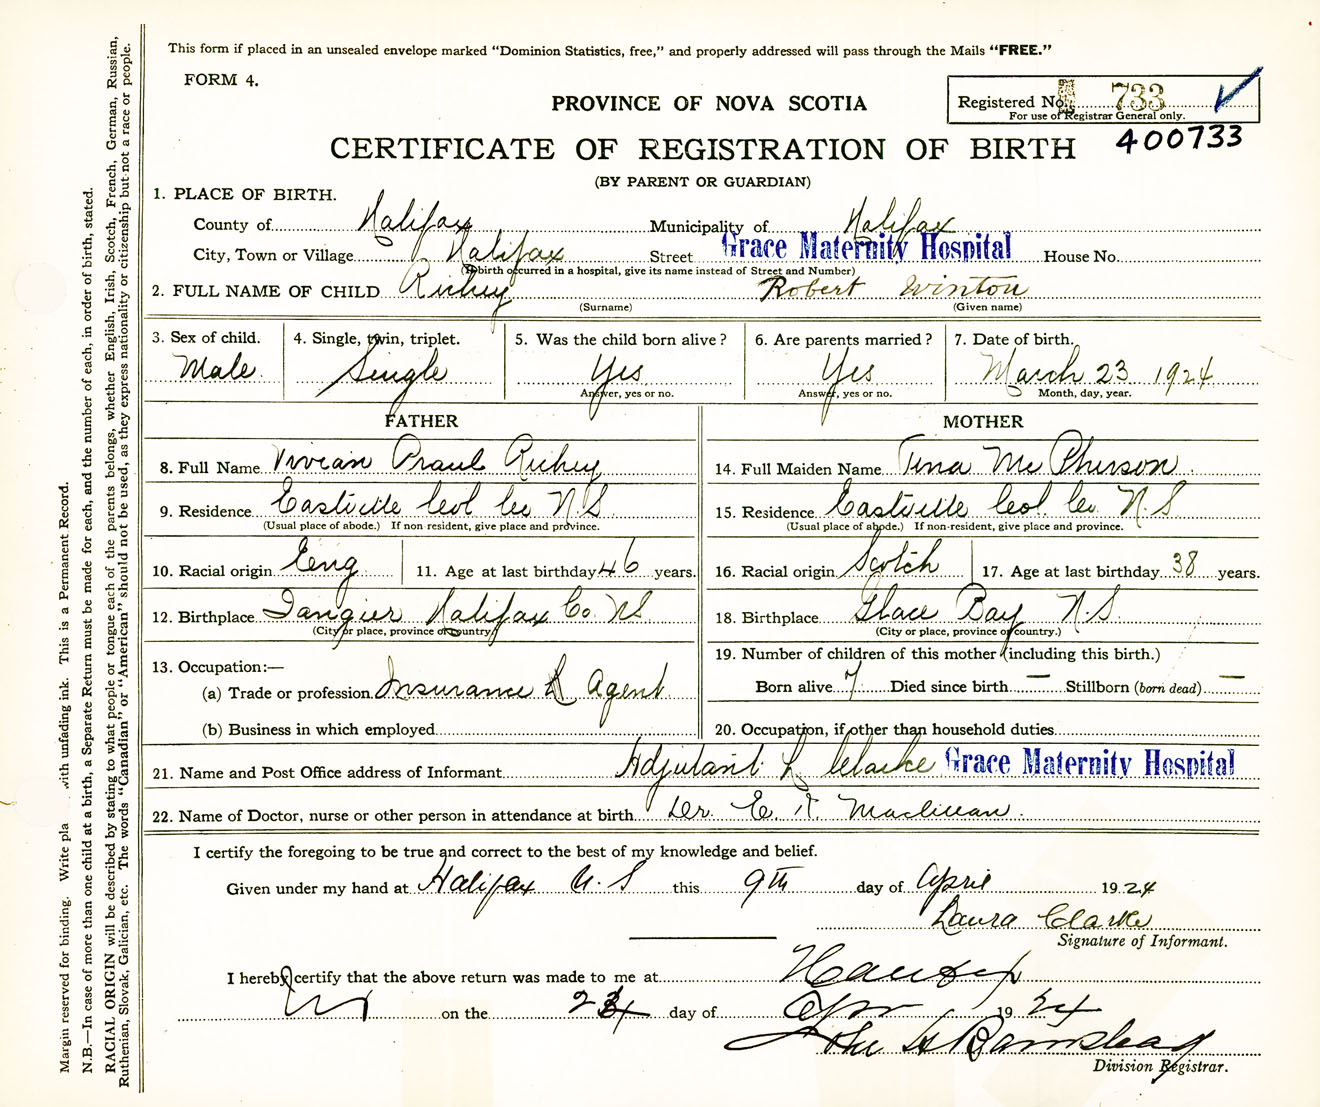 This form if placed in an unsealed envelope marked "Dominion Statistics, free," and properly addressed will pass through the Mails "FREE."
FORM 4.
Registered No. 733
For use of Registrar General only.
400733
PROVINCE OF NOVA SCOTIA
CERTIFICATE OF REGISTRATION OF BIRTH
(BY PARENT OR GUARDIAN)
1. PLACE OF BIRTH.
County of Halifax Municipality of Halifax
City, Town or Village Halifax Street Grace Maternity Hospital House No.
(If birth occurred in a hospital, give its name instead of Street and Number)
2. FULL NAME OF CHILD Richey Robert Winton
(Surname) (Given name)
3. Sex of child. 4. Single, twin, triplet. 5. Was the child born alive? 6. Are parents married? 7. Date of birth.
Male Single Yes Yes March 23 1924
Answer, yes or no. Answer, yes or no. Month, day, year.
FATHER MOTHER
8. Full Name Vivian Richey 14. Full Maiden Name Tina McPherson
9. Residence Eastville Col Co N.S. 15. Residence Eastville Col Co. N.S
(Usual place of abode.) If non-resident, give place and province. (Usual place of abode.) If non-resident, give place and province.
10. Racial origin Eng 11. Age at last birthday 46 years. 16. Racial origin Scotch 17. Age at last birthday 38 years.
12. Birthplace Tangier Halifax Co. NS 18. Birthplace Glace Bay N.S.
(City or place, province or country) (City or place, province or country.)
13. Occupation:— 19. Number of children of this mother (including this birth.)
(a) Trade or profession Insurance Agent Born alive 7 Died since birth — Stillborn (born dead) —
(b) Business in which employed 20. Occupation, if other than household duties
21. Name and Post Office address of Informant Adjutant L Clarke Grace Maternity Hospital
22. Name of Doctor, nurse or other person in attendance at birth Dr. E. K.
I certify the foregoing to be true and correct to the best of my knowledge and belief.
Given under my hand at Halifax N.S this 9th day of April 1924
Laura Clarke
Signature of Informant.
I hereby certify that the above return was made to me at Halifax
NS on the 24 day of Apr 1924
John H Barnstead
Division Registrar.
Margin reserved for binding. Write pla with unfading ink. This is a Permanent Record.
N.B.—In case of more than one child at a birth, a Separate Return must be made for each, and the number of each, in order of birth, stated.
RACIAL ORIGIN will be described by stating to what people or tongue each of the parents belongs, whether English, Irish, Scotch, French, German, Russian,
Ruthenian, Slovak, Galician, etc. The words "Canadian" or "American" should not be used, as they express nationality or citizenship but not a race or people.